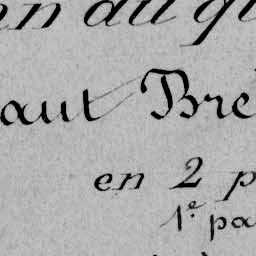 du
aut Bre
en 2 p
1e pa